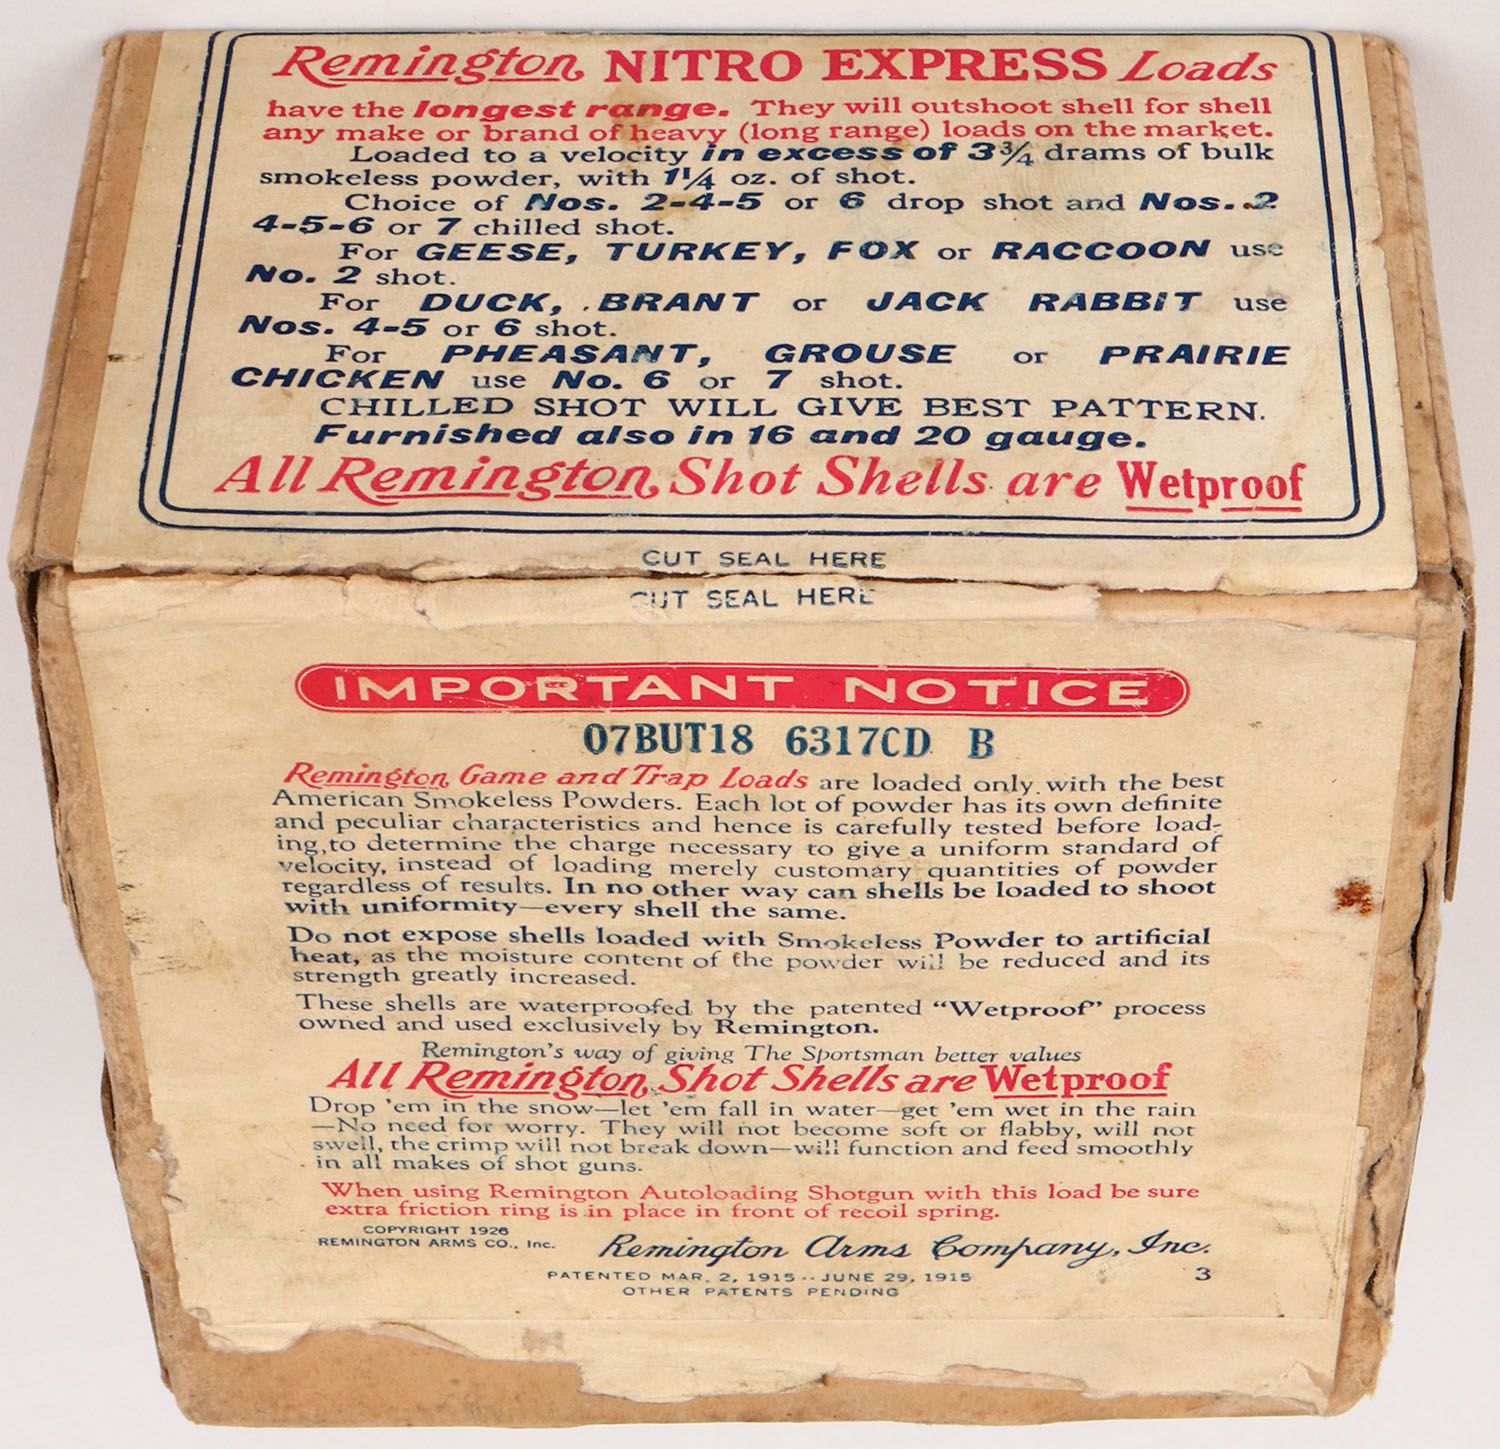 Remington NITRO EXPRESS Loads
have the longest range. They will outshoot shell for shell
any make or brand of heavy (long range) loads on the market.
Loaded to a velocity in excess of 3 3/4 drams of bulk
smokeless powder, with 1 1/4 oz. of shot.
Choice of Nos. 2-4-5 or 6 drop shot and Nos. 2
4-5-6 or 7 chilled shot.
For GEESE, TURKEY, FOX or RACCOON use
No. 2 shot.
For DUCK, BRANT or JACK RABBIT use
Nos. 4-5 or 6 shot.
For PHEASANT, GROUSE or PRAIRIE
CHICKEN use No. 6 or 7 shot.
CHILLED SHOT WILL GIVE BEST PATTERN.
Furnished also in 16 and 20 gauge.
All Remington Shot Shells are Wetproof
CUT SEAL HERE
CUT SEAL HERE
IMPORTANT NOTICE
07BUT18 6317CD B
Remington Game and Trap Loads are loaded only with the best
American Smokeless Powders. Each lot of powder has its own definite
and peculiar characteristics and hence is carefully tested before load-
ing, to determine the charge necessary to give a uniform standard of
velocity, instead of loading merely customary quantities of powder
regardless of results. In no other way can shells be loaded to shoot
with uniformity—every shell the same.
Do not expose shells loaded with Smokeless Powder to artificial
heat, as the moisture content of the powder will be reduced and its
strength greatly increased.
These shells are waterproofed by the patented "Wetproof" process
owned and used exclusively by Remington.
Remington's way of giving The Sportsman better values
All Remington Shot Shells are Wetproof
Drop 'em in the snow—let 'em fall in water—get 'em wet in the rain
—No need for worry. They will not become soft or flabby, will not
swell, the crimp will not break down—will function and feed smoothly
in all makes of shot guns.
When using Remington Autoloading Shotgun with this load be sure
extra friction ring is in place in front of recoil spring.
COPYRIGHT 1926
REMINGTON ARMS CO., Inc.
Remington Arms Company, Inc.
PATENTED MAR. 2, 1915 -- JUNE 29, 1915
3
OTHER PATENTS PENDING